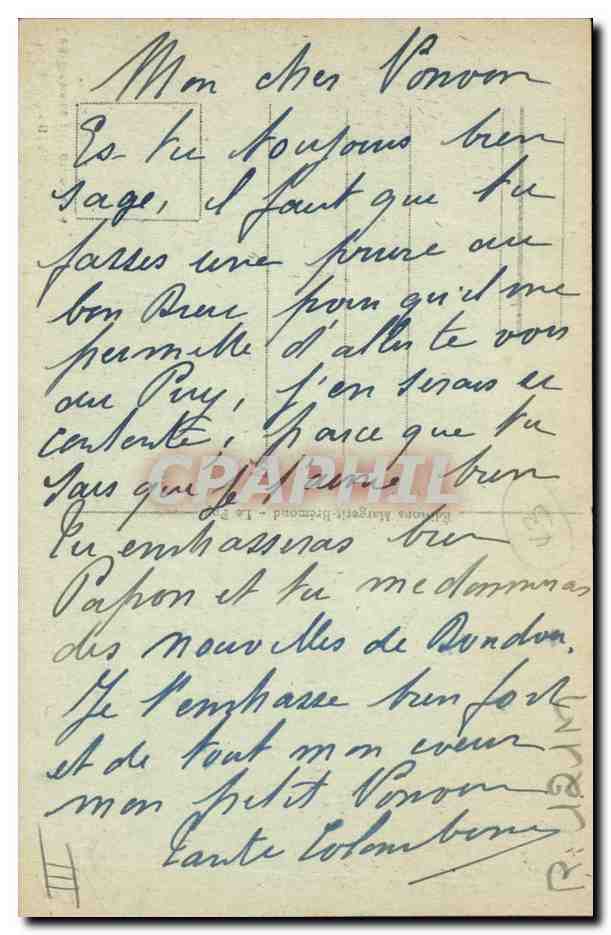 Mon cher Vonvon
Es-tu toujours bien
sage, il faut que tu
fasses une prière au
bon Dieu pour qu'il me
permette d'aller te voir
au Puy, j'en serais si
contente, parce que tu
sais que je t'aime bien
CPARPHIL
Editions Margerit-Brémond - Le Puy
Tu embrasseras bien
Papon et tu me donneras
des nouvelles de Dondon.
Je t'embrasse bien fort
et de tout mon coeur
mon petit Vonvon
Tante Colombine
III